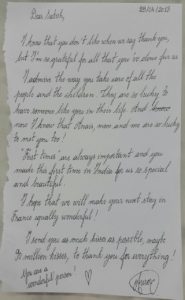 Dear Satish,
I know that you don't like when we say thank you,
but I'm so grateful for all that you've done for us.
I admire the way you take care of all the
people and the children. They are so lucky to
have someone like you in their life. And
I know that Anais, mom and me are so lucky
to met you too!
First times are always important and you
made this first time in India for us so special
and beautiful.
I hope that we will make your next stay in
France equally wonderful!
I send you as much kiss as possible, maybe
91 million kisses, to thank you for everything!
You are a
wonderful person!